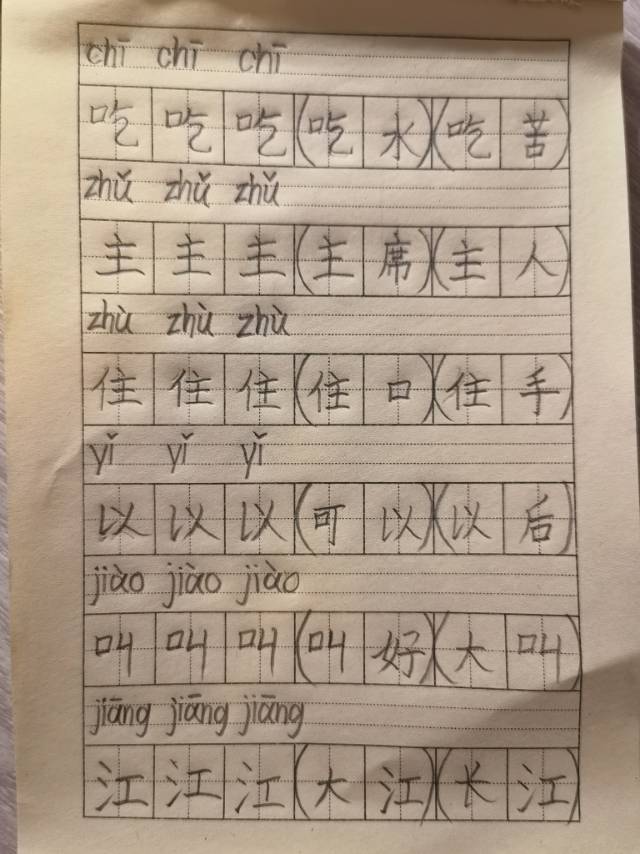 chī chī chī
吃吃吃(吃水)(吃苦)
zhǔ zhǔ zhǔ
主主主(主席)(主人)
zhù zhù zhù
住住住(住口)(住手)
yǐ yǐ yǐ
以以以(可以)(以后)
jiào jiào jiào
叫叫叫(叫好)(大叫)
jiāng jiāng jiāng
江江江(大江)(长江)